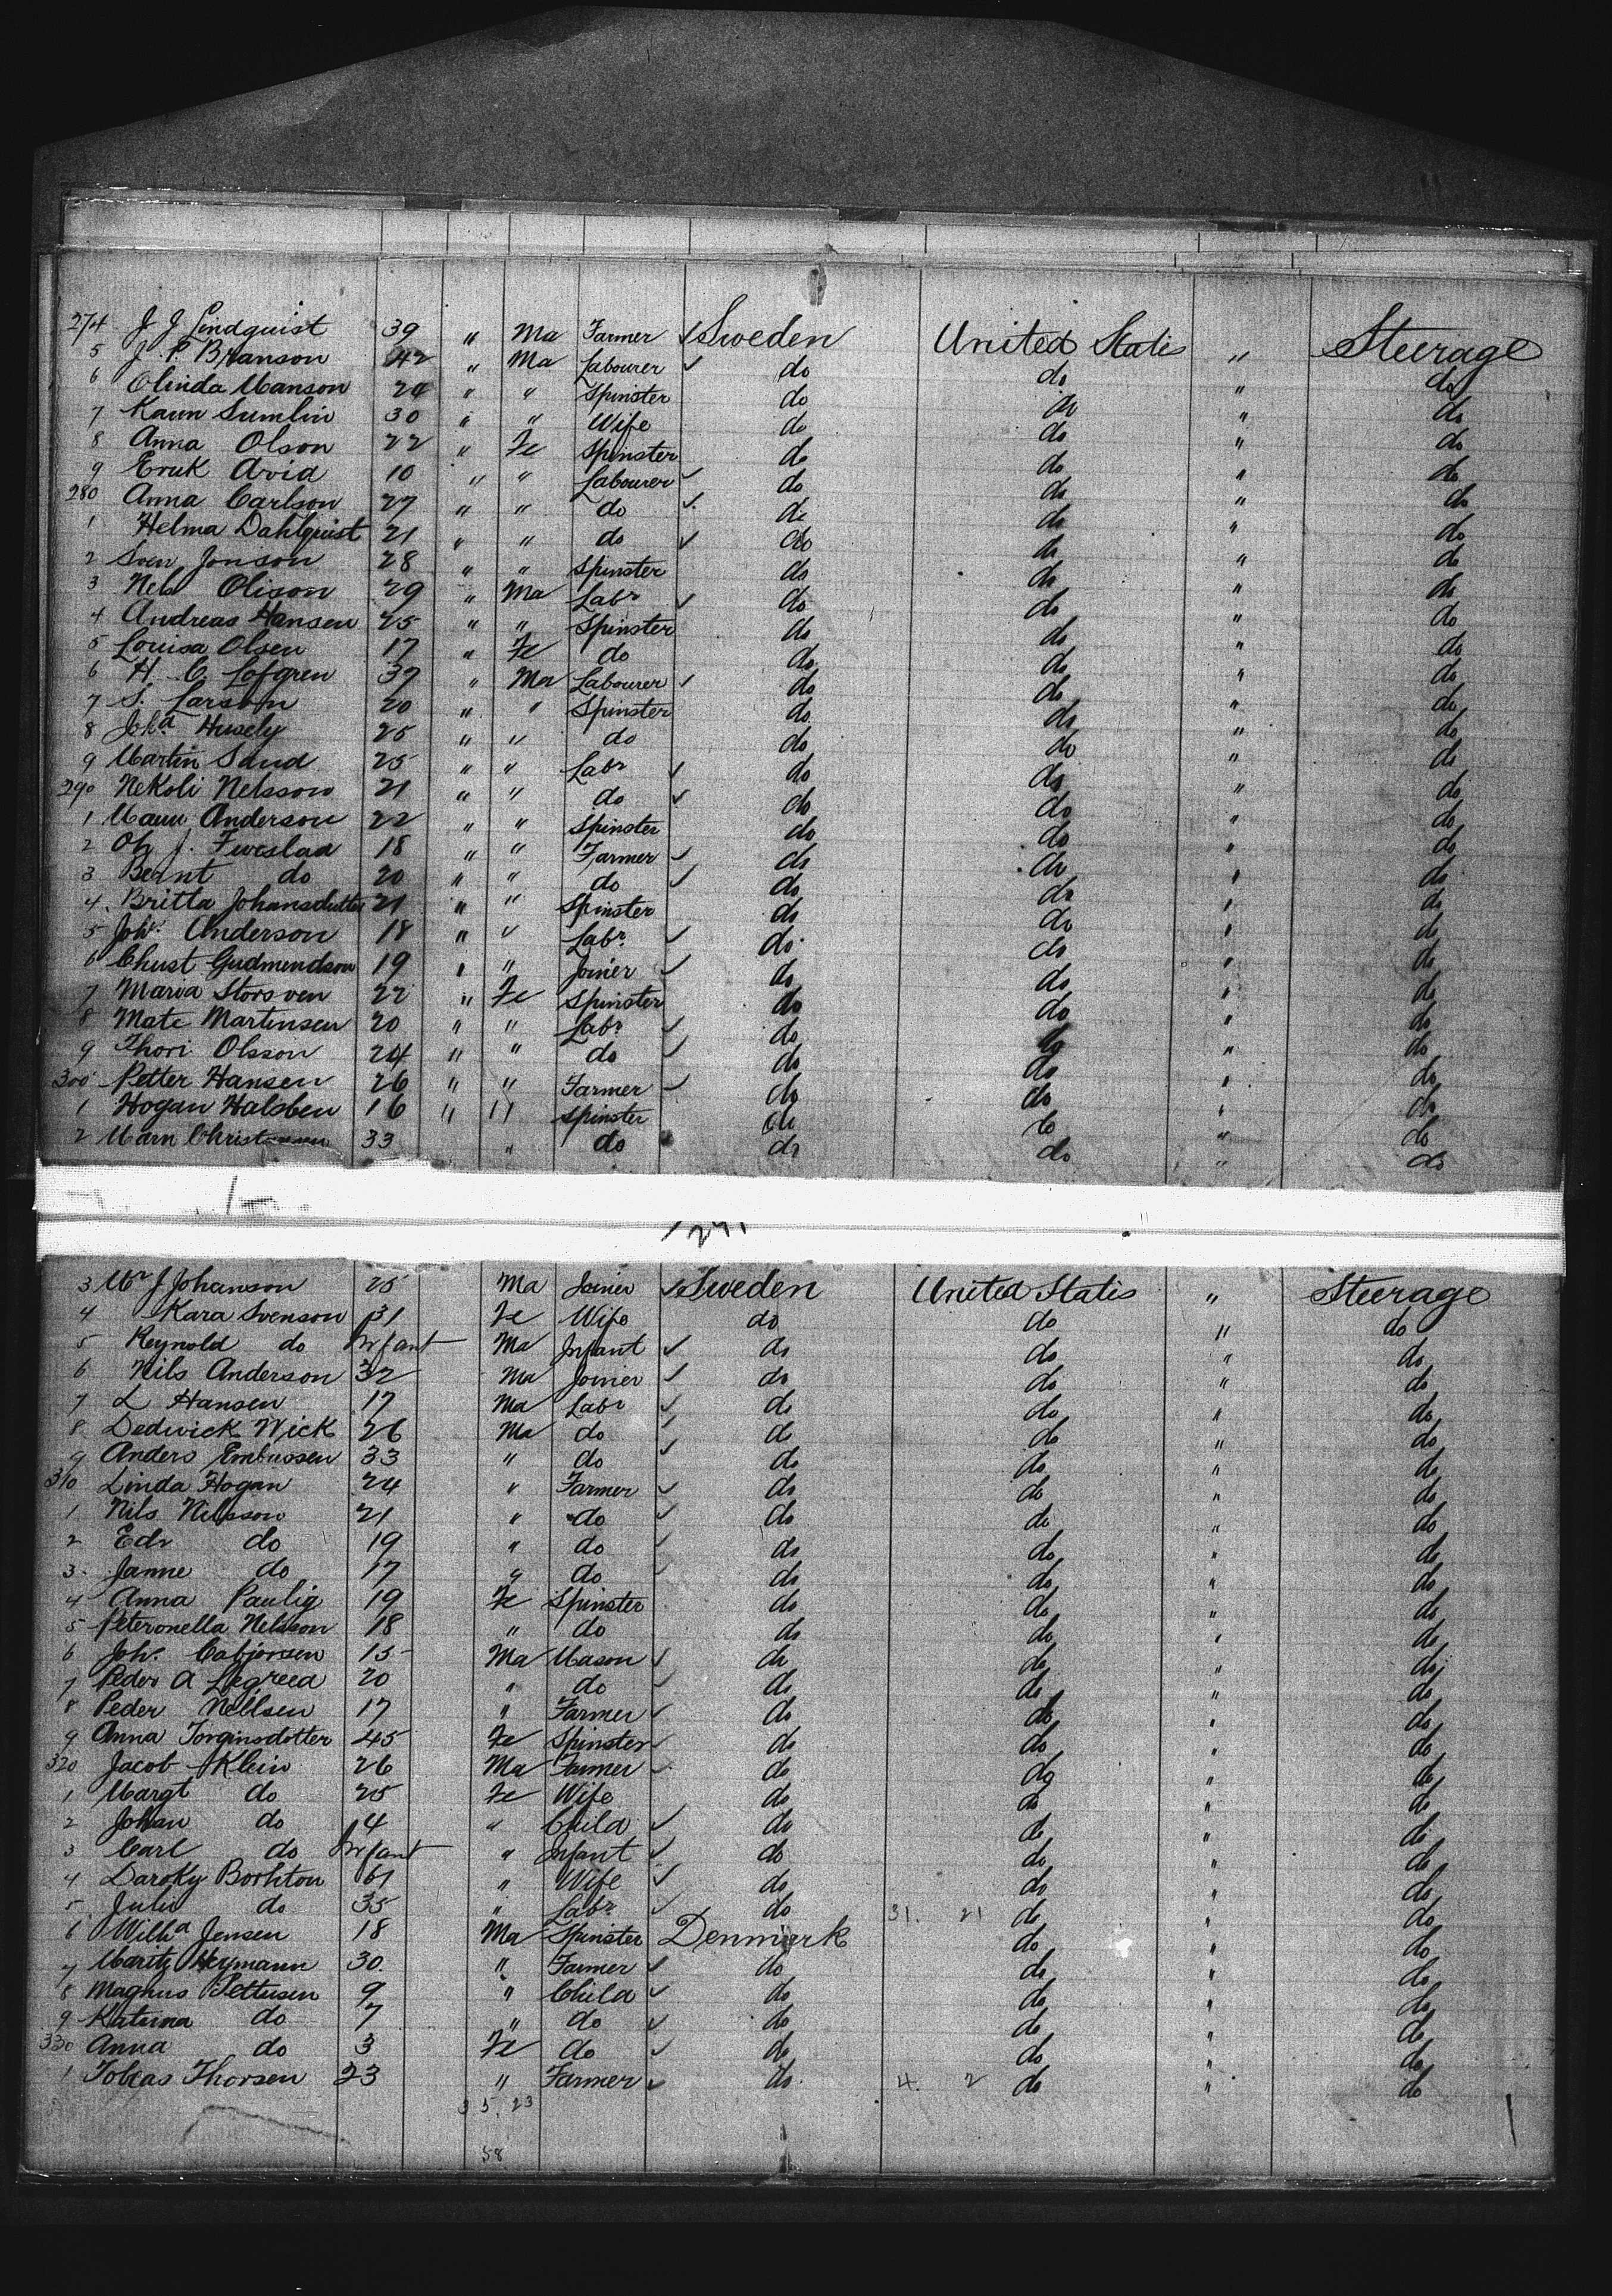 274 J J Lindquist 39 " Ma Farmer ✓ Sweden United States " Steerage
5 J. P. Branson 42 " Ma Labourer ✓ do do " do
6 Olinda Manson 24 " " Spinster do do " do
7 Karin Sumlin 30 " " Wife do do " do
8 Anna Olson 22 " Fe Spinster do do " do
9 Eruk Avid 10 " " Labourer ✓ do do " do
280 Anna Carlson 27 " " do ✓ do do " do
1 Helma Dahlquist 21 " " do ✓ do do " do
2 Sven Jonson 28 " " Spinster do do " do
3 Nels Olison 29 " Ma Labr ✓ do do " do
4 Andreas Hansen 25 " " Spinster do do " do
5 Louisa Olsen 17 " Fe do do do " do
6 H. C. Lofgren 39 " Ma Labourer ✓ do do " do
7 S. Larson 20 " " Spinster do do " do
8 Joha Husely 25 " " do do do " do
9 Martin Sand 25 " " Labr ✓ do do " do
290 Nekoli Nelsson 21 " " do ✓ do do " do
1 Anderson 22 " " Spinster do do " do
2 J. 18 " " Farmer ✓ do do " do
3 Bernt do 20 " " do ✓ do do " do
4 Britta Johansdutter 21 " " Spinster do do " do
5 Joh. Anderson 18 " " Labr ✓ do do " do
6 Chust Gudmendson 19 " " Joiner ✓ do do " do
7 Maria Storsven 22 " Fe Spinster do do " do
8 Mate Martensen 20 " " Labr ✓ do do " do
9 Thori Olsson 24 " " do ✓ do do " do
300 Petter Hansen 26 " " Farmer ✓ do do " do
1 Hogan Halsben 16 " " Spinster do do " do
2 Marn 33 " do do do " do
3 Mr J Johanson 25 Ma Joiner ✓ Sweden United States " Steerage
4 Kara Svenson 31 Fe Wife do do " do
5 Reynold do Infant Ma Infant ✓ do do " do
6 Nils Anderson 32 Ma Joiner ✓ do do " do
7 L Hansen 17 Ma Labr ✓ do do " do
8 Dedwick Wick 26 Ma do ✓ do do " do
9 Anders Embussen 33 " do ✓ do do " do
310 Linda Hogan 24 " Farmer ✓ do do " do
1 Nils Nilsson 21 " do ✓ do do " do
2 Edv do 19 " do ✓ do do " do
3 Janne do 17 " do ✓ do do " do
4 Anna Paulig 19 Fe Spinster do do " do
5 Peteronella Nelsson 18 " do do do " do
6 Joh. Cabjorsen 15 Ma Mason ✓ do do " do
7 Peder A Legreed 20 " do ✓ do do " do
8 Peder Nellsen 17 " Farmer ✓ do do " do
9 Anna Torginsdotter 45 Fe Spinster ✓ do do " do
320 Jacob Klein 26 Ma Farmer ✓ do do " do
1 Margt do 25 Fe Wife do do " do
2 Johan do 4 " Child ✓ do do " do
3 Carl do Infant " Infant ✓ do do " do
4 Daroky Borhton 61 " Wife ✓ do do " do
5 Juliu do 35 " Labr ✓ do 31. 21 do " do
6 Willa Jensen 18 Ma Spinster Denmark do " do
7 Maritz Heymann 30 " Farmer ✓ do do " do
8 Magnus Pettusen 9 " Child ✓ do do " do
9 Katrina do 7 " do ✓ do do " do
330 Anna do 3 Fe do ✓ do do " do
1 Tobias Thorsen 23 " Farmer ✓ do 4. 2 do " do
35. 23
58